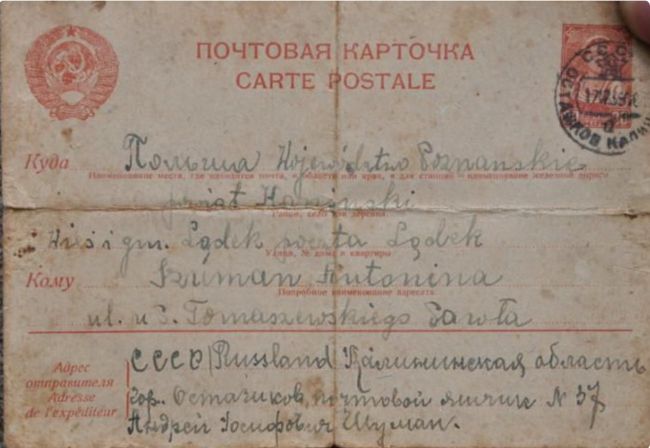 ПОЧТОВАЯ КАРТОЧКА
CARTE POSTALE
Куда Польша Województwo Poznańskie
Наименование места, где находится почта, и области или края, а для станции – наименование железной дороги
powiat
Район, село или деревня.
Wieś i gm. Lądek poczta Lądek
Улица, № дома и квартиры
Кому Szuman Antonina
Подробное наименование адресата.
ul. u S. Tomaszewskiego Pawła
Адрес отправителя
Adresse de l'expéditeur
СССР/Russland Калининская область
гор. Осташков, почтовой ящик N 37
Андрей Иосифович Шуман.